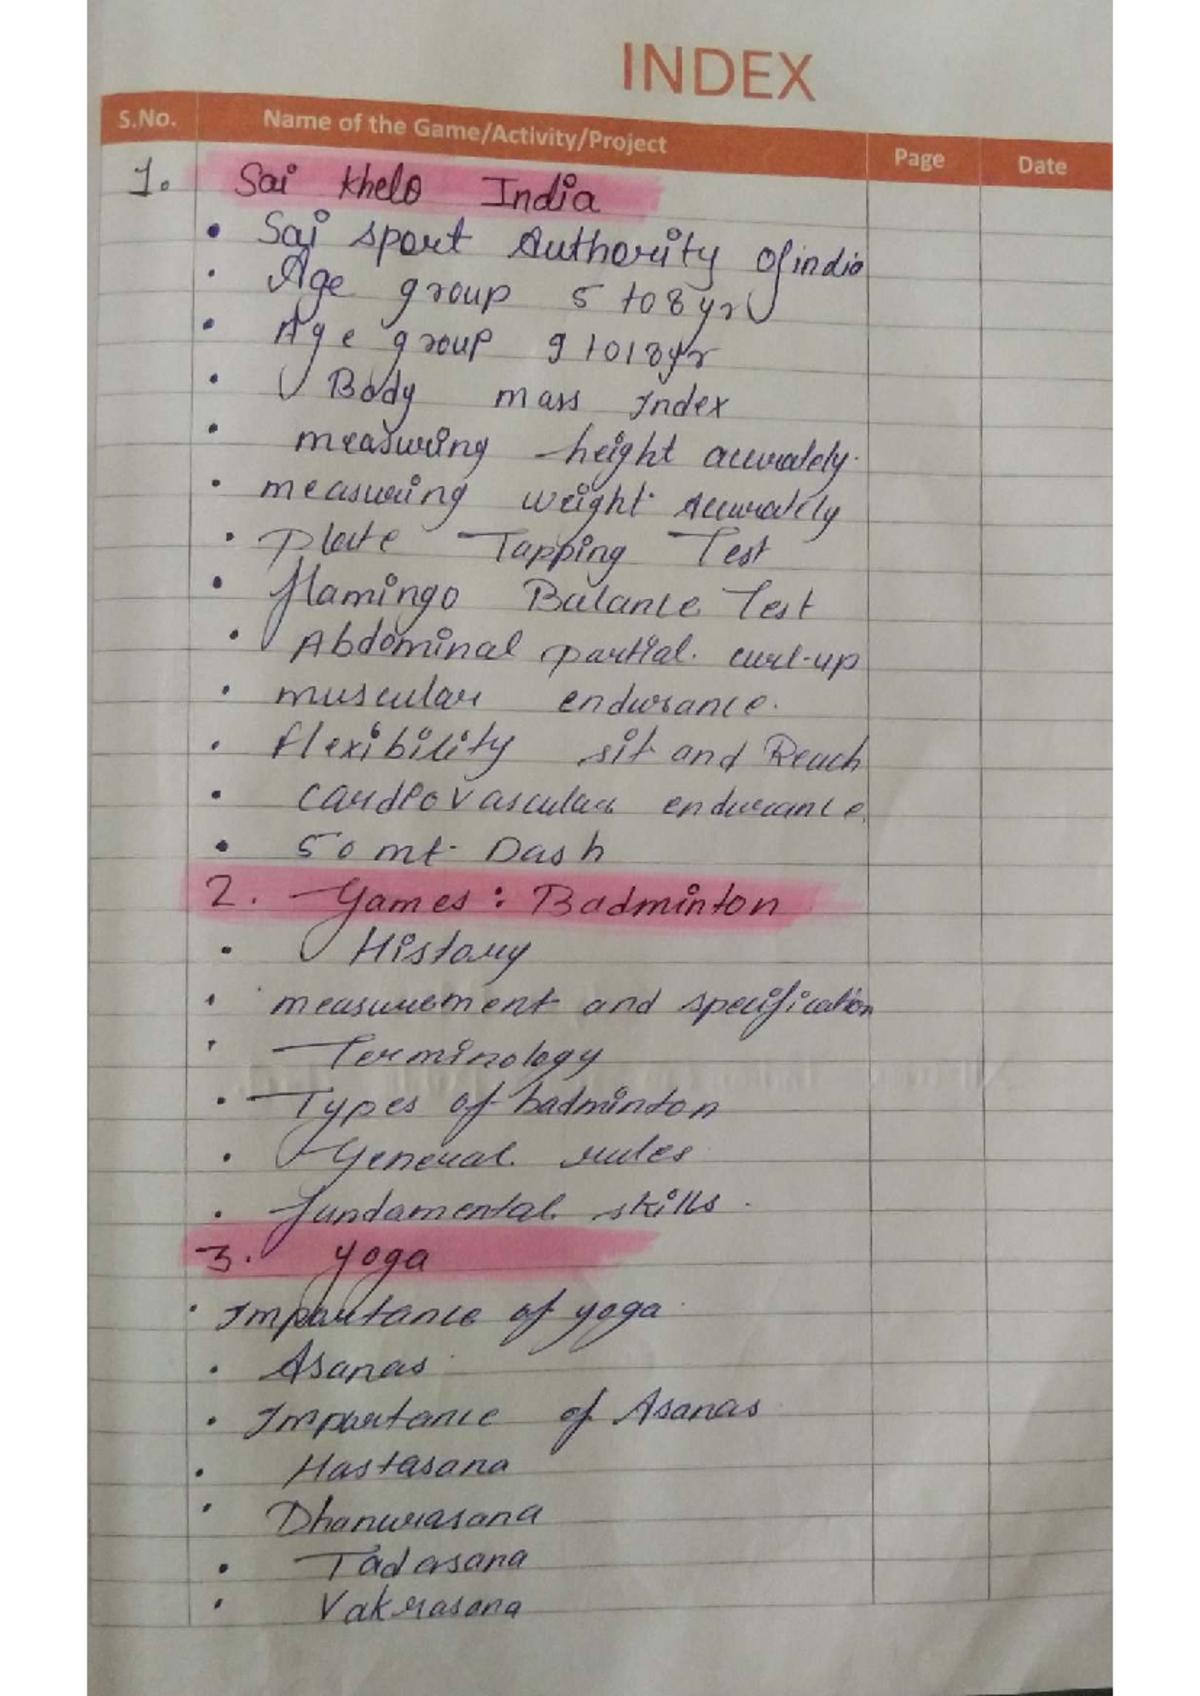 INDEX
S.No. Name of the Game/Activity/Project Page Date
1. Sai Khelo India
• Sai sport Authority of india
• Age group 5 to 8 yr
• Age group 9 to 18 yr
• Body mass Index
• measuring height accurately.
• measuring weight accurately
• Plate Tapping Test
• flamingo Balance Test
• Abdominal partial curl-up
• muscular endurance.
• flexibility sit and Reach
• cardiovascular endurance
• 50 mt. Dash
2. Games: Badminton
• History
• measurement and specification
• Terminology
• Types of badminton
• General rules
• fundamental skills.
3. Yoga
• Importance of yoga
• Asanas
• Importance of Asanas
• Hastasana
• Dhanurasana
• Tadasana
• Vakrasana